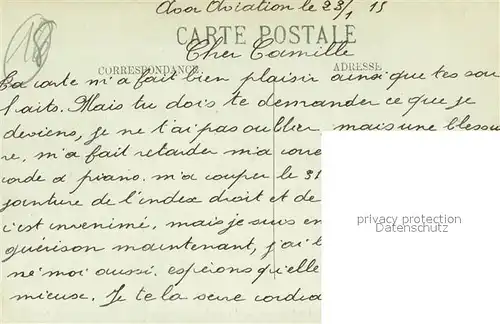 Avor Aviation le 23/1 15
CARTE POSTALE
Cher Camille
CORRESPONDANCE ADRESSE
Ta carte m'a fait bien plaisir ainsi que tes sou
haits. Mais tu dois te demander ce que je
deviens, je ne t'ai pas oublier, mais une blessu
re, m'a fait retarder ma corre
corde a piano. m'a couper le 31
jointure de l'index droit et de
c'est invenimé, mais je suis en
guérison maintenant, j'ai
né moi aussi. espérons qu'elle
mieux. Je te la serre cordia
privacy protection
Datenschutz
18